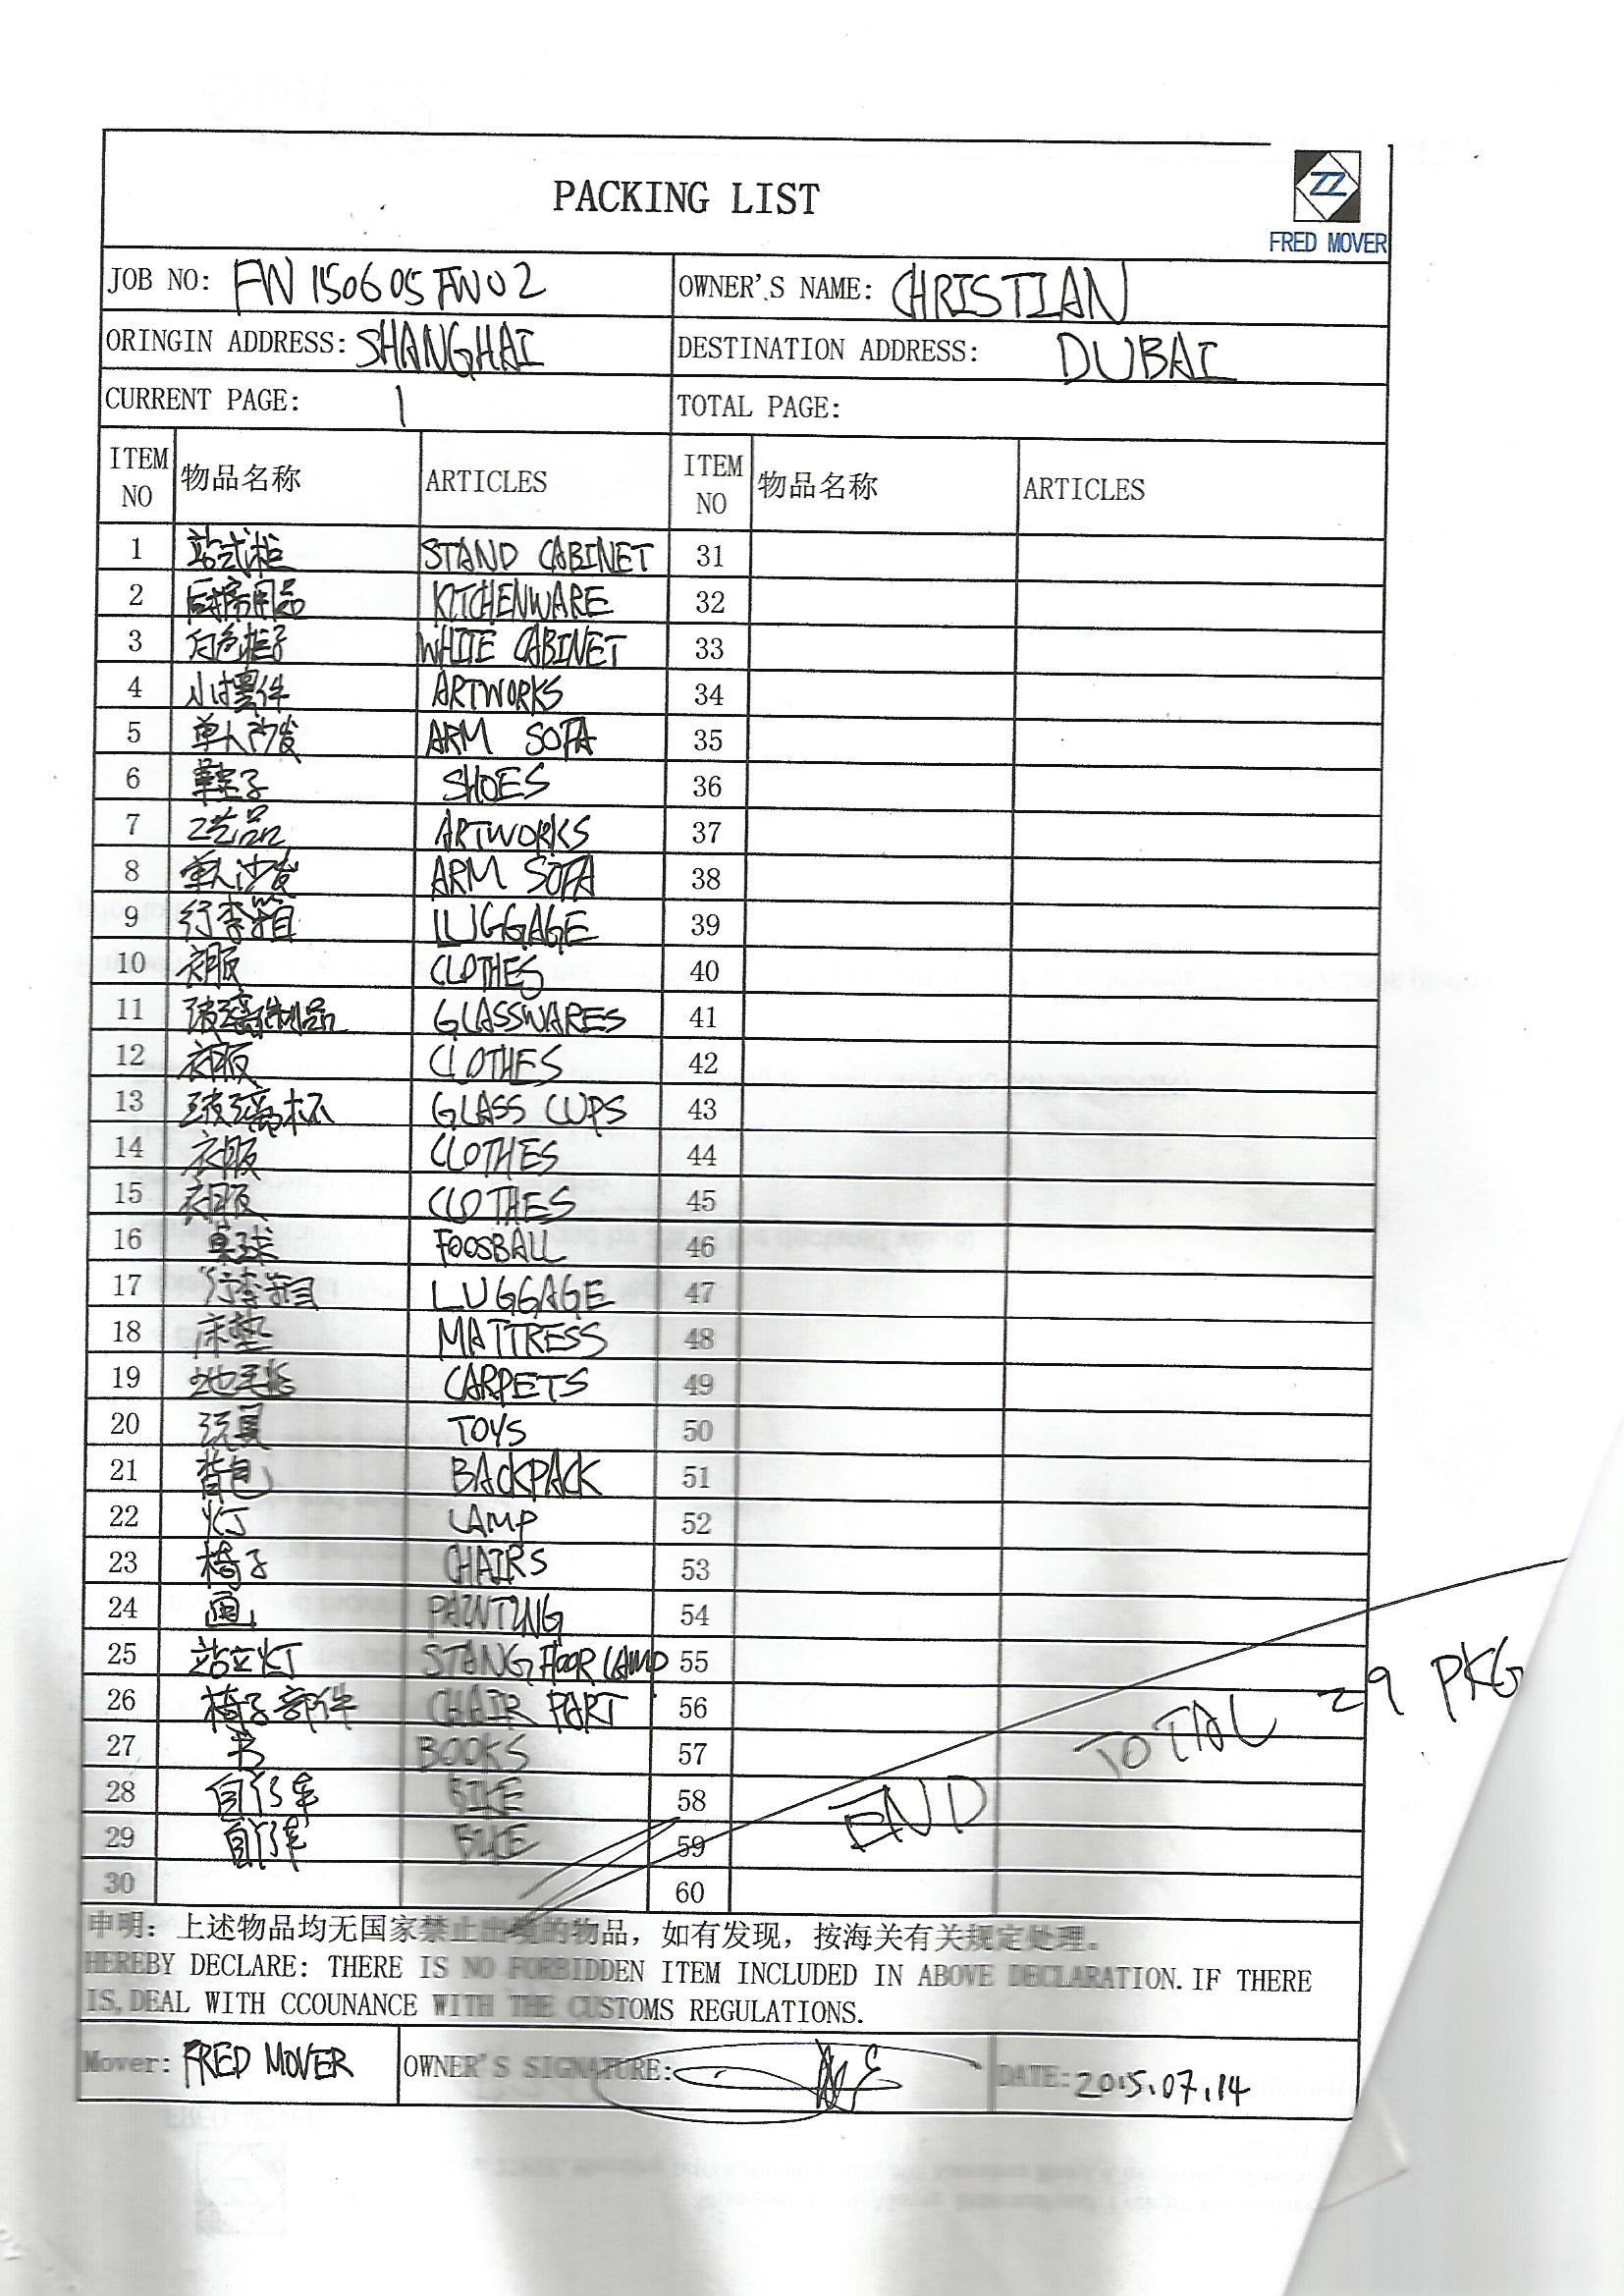 PACKING LIST
ZZ
FRED MOVER
JOB NO: FW150605FW02 OWNER'S NAME: CHRISTIAN
ORINGIN ADDRESS: SHANGHAI DESTINATION ADDRESS: DUBAI
CURRENT PAGE: 1 TOTAL PAGE:
ITEM NO 物品名称 ARTICLES ITEM NO 物品名称 ARTICLES
1 站式柜 STAND CABINET 31
2 厨房用品 KITCHENWARE 32
3 白色柜子 WHITE CABINET 33
4 小摆件 ARTWORKS 34
5 单人沙发 ARM SOFA 35
6 鞋子 SHOES 36
7 工艺品 ARTWORKS 37
8 单人沙发 ARM SOFA 38
9 行李箱 LUGGAGE 39
10 衣服 CLOTHES 40
11 玻璃制品 GLASSWARES 41
12 衣服 CLOTHES 42
13 玻璃杯 GLASS CUPS 43
14 衣服 CLOTHES 44
15 衣服 CLOTHES 45
16 桌球 FOOSBALL 46
17 行李箱 LUGGAGE 47
18 床垫 MATTRESS 48
19 地毛毯 CARPETS 49
20 玩具 TOYS 50
21 背包 BACKPACK 51
22 灯 LAMP 52
23 椅子 CHAIRS 53
24 画 PAINTING 54
25 站立灯 STANG FLOOR LAMP 55
26 椅子部件 CHAIR PART 56
27 书 BOOKS 57
28 自行车 BIKE 58
29 自行车 BIKE 59
30 60
END TOTAL 29 PKG
申明：上述物品均无国家禁止出境的物品，如有发现，按海关有关规定处理。
HEREBY DECLARE: THERE IS NO FORBIDDEN ITEM INCLUDED IN ABOVE DECLARATION. IF THERE
IS, DEAL WITH CCOUNANCE WITH THE CUSTOMS REGULATIONS.
Mover: FRED MOVER OWNER'S SIGNATURE: DATE: 2015.07.14